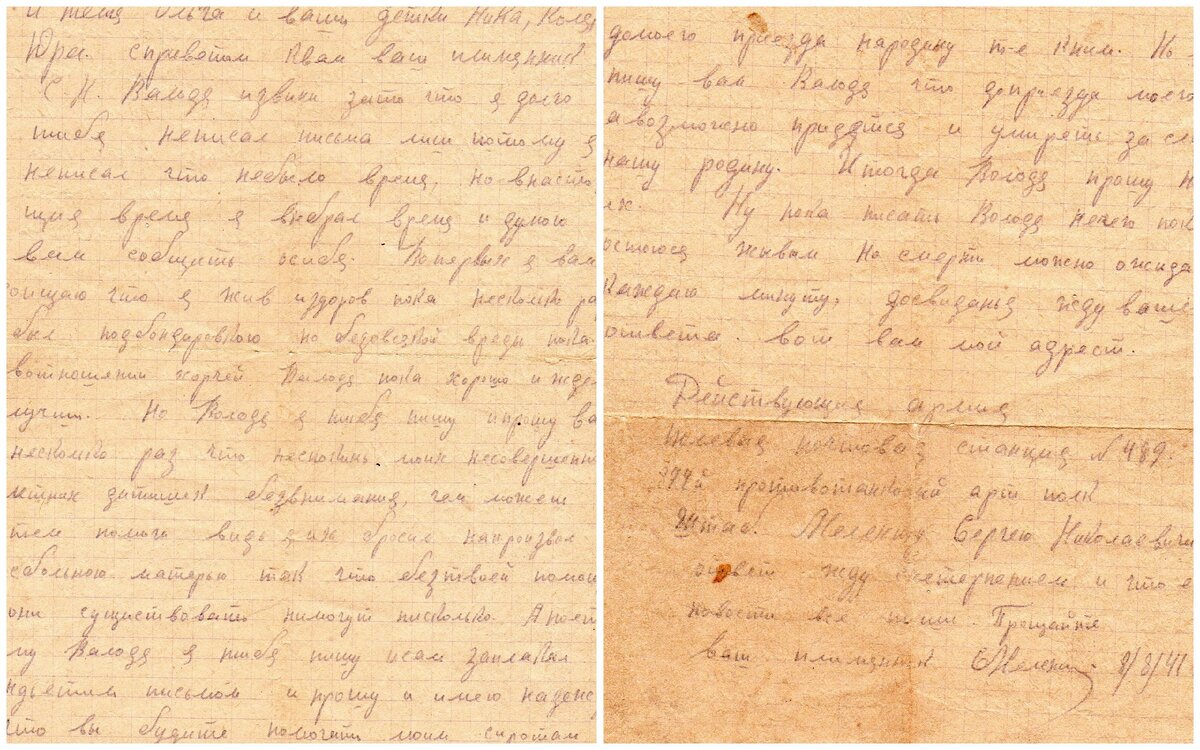 и тётя Ольга и ваши детки Ника, Коля
Юра. с приветом квам ваш племянник
С. Н. Валодя извини зато что я долго
тибя неписал письма лиш потому я
неписал что небыло время, но внасто
щия время я выбрал время и думою
вам сообщить осибе. Вопервых я вам
сообщаю что я жив издоров пока несколько ра
был подбондировкою но
вотношении харчей Валодя пока хорошо и жде
лучши. Но Володя я тибя пишу ипрошу ва
несколько раз что неспокинь моих несовершенно
летних детишек безвнимания, чем можеш
тем помоги видь я их бросил напроизвол
сабольною матерью так что безтвоей помощи
они существовать нимогут нисколько. А поэт
му Валодя я тибя пишу исам заплакал
надетим письмом и прошу и имею надеж
что вы будите помогать моим сиротам
домоего приезда народину т-е кним. Но
пишу вам Валодя что доприезда моего
а возможно придётся и умирать за св
нашу родину. Итогда Володя прошу н
их. Ну пока писать Володя нечего пока
остаюся живым но смерти можно ожида
каждою минуту, досвиданья жду ваше
ответа. вот вам мой адрест.
Действующия армия
полевая почтовая станция N 489.
противотанковый арт полк
Штаб. Меленюк Сергею Николаевичи
ответ жду нетерпением и что е
новости все пиши. Прощайте
ваш племянник 8/8/41